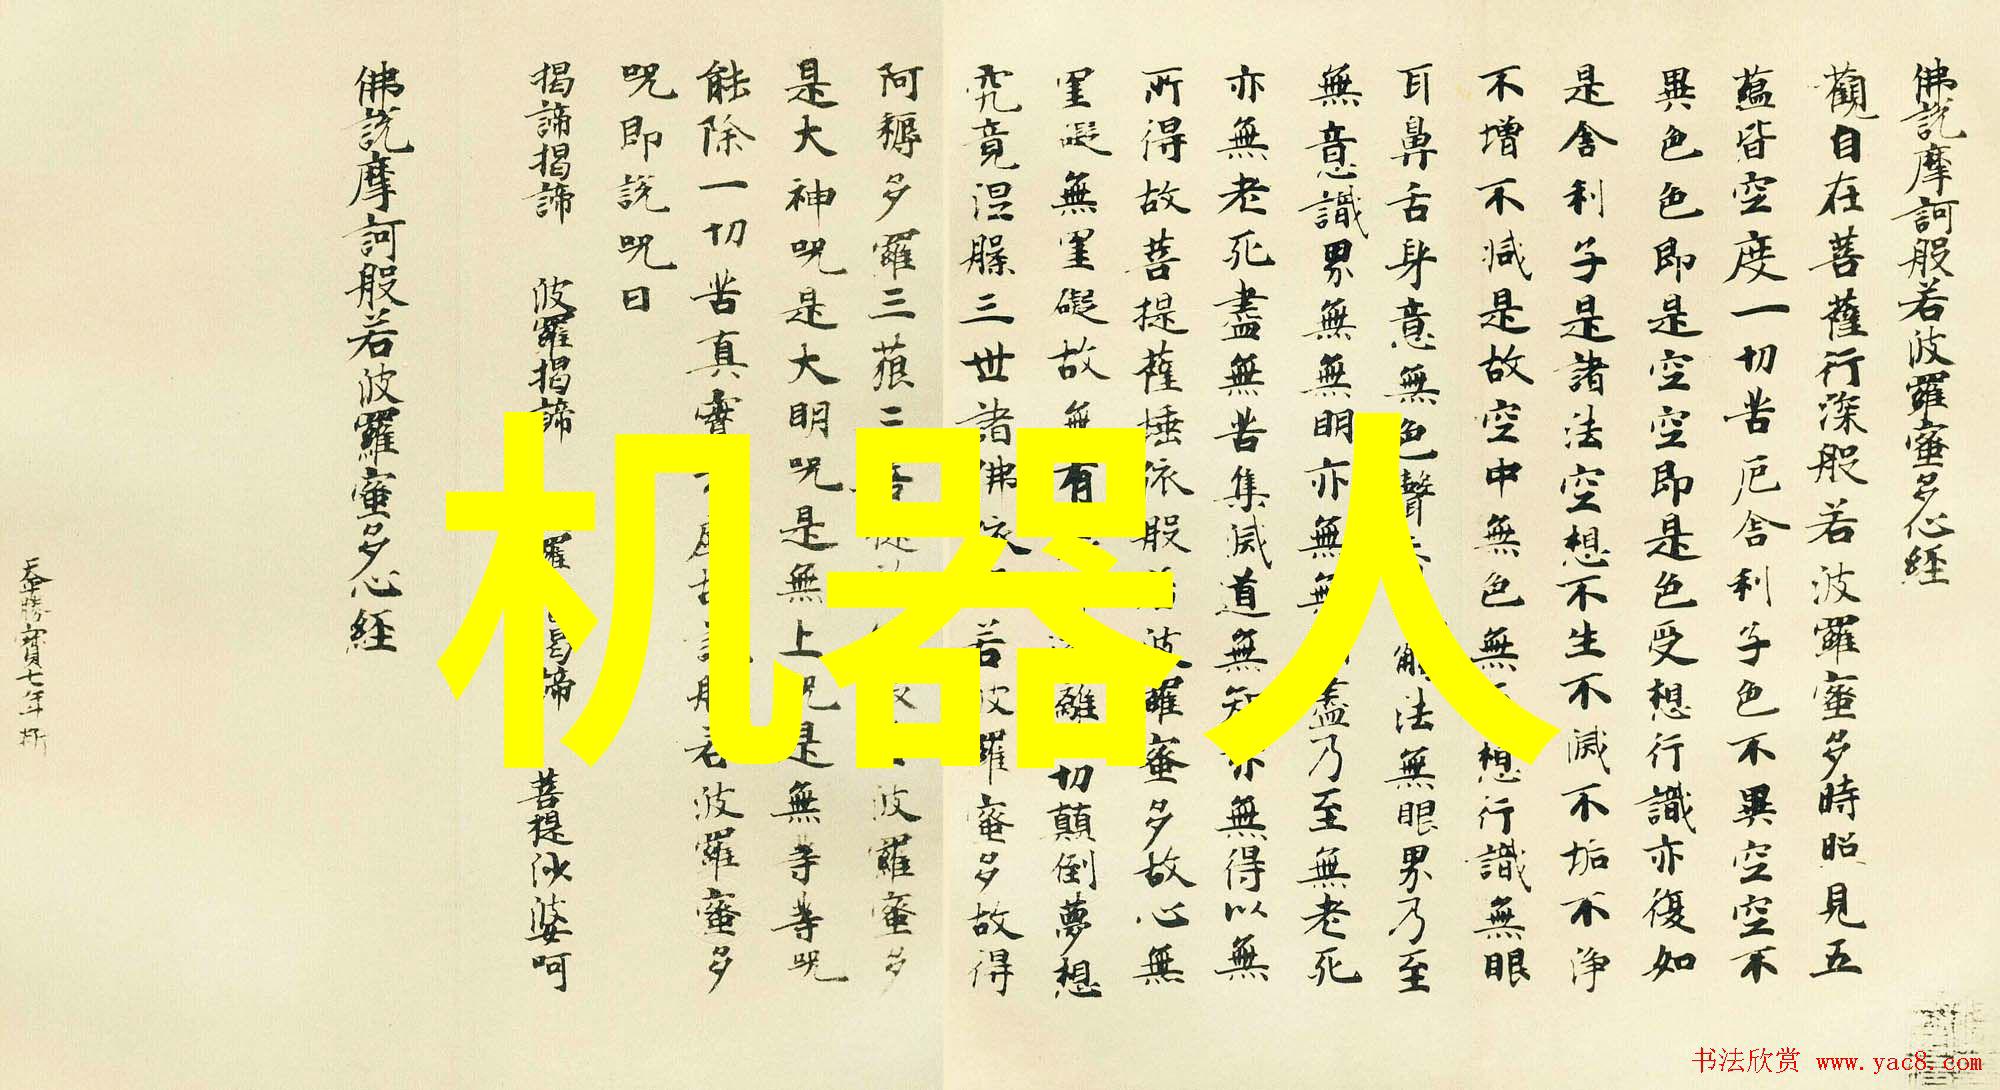 佛說摩訶般若波羅蜜多心經
觀自在菩薩行深般若波羅蜜多時照見五
蘊皆空度一切苦厄舍利子色不異空空不
異色色即是空空即是色受想行識亦復如
是舍利子是諸法空想不生不滅不垢不淨
不增不減是故空中無色無想行識無眼
耳鼻舌身意無色聲觸法無眼界乃至
無意識界無無明亦無無盡乃至無老死
亦無老死盡無苦集滅道無知亦無得以無
所得故菩提薩埵依般若波羅蜜多故心無
罣礙無罣礙故無有離切顛倒夢想
究竟涅槃三世諸佛依若波羅蜜多故得
阿耨多羅三藐三菩波羅蜜多
是大神呪是大明呪是無上呪是無等等呪
能除一切苦真實虛故說般若波羅蜜多
呪即說呪曰
揭諦揭諦 波羅揭諦 羅揭諦 菩提沙婆呵
佛說摩訶般若波羅蜜多心經
勝寶七年
机器人
书法欣赏 www.yac8.com